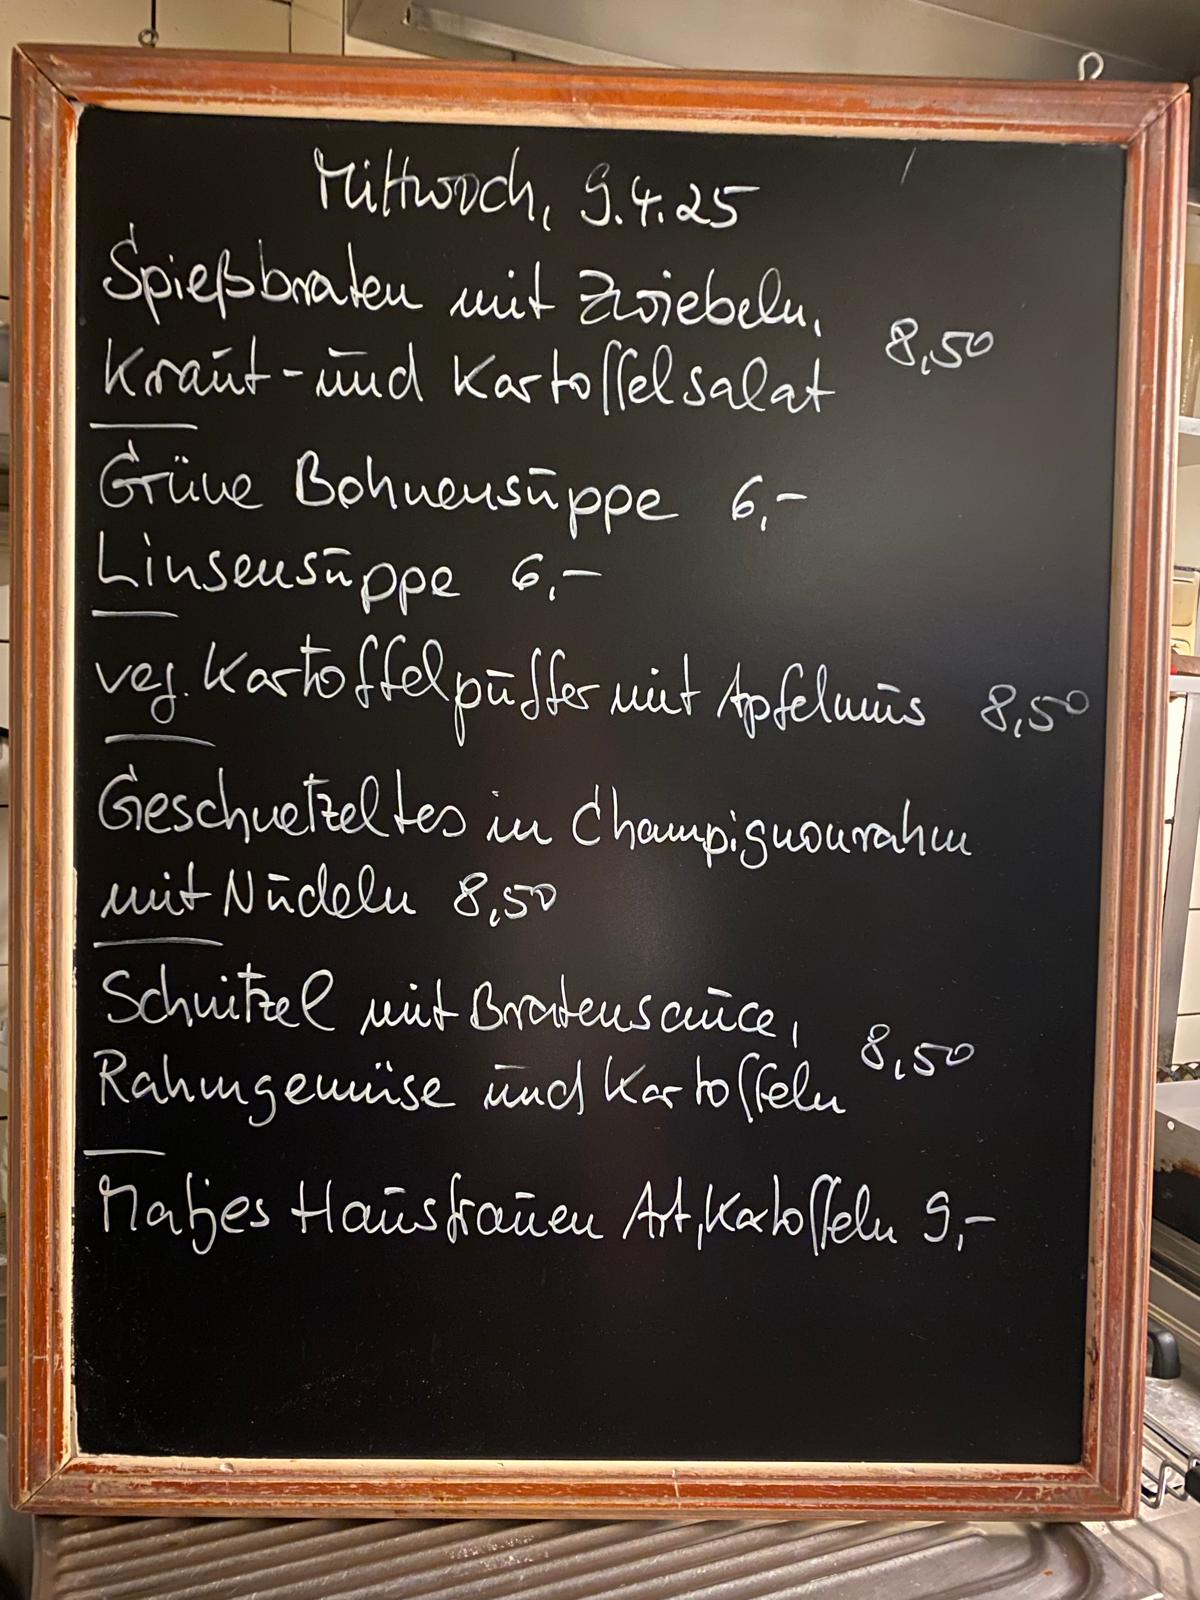 Mittwoch, 9.4.25
Spießbraten mit Zwiebeln,
Kraut- und Kartoffelsalat 8,50
Grüne Bohnensuppe 6,-
Linsensuppe 6,-
veg. Kartoffelpuffer mit Apfelmus 8,50
Geschnetzeltes in Champignonrahm
mit Nudeln 8,50
Schnitzel mit Bratensauce,
Rahmgemüse und Kartoffeln 8,50
Matjes Hausfrauen Art, Kartoffeln 9,-